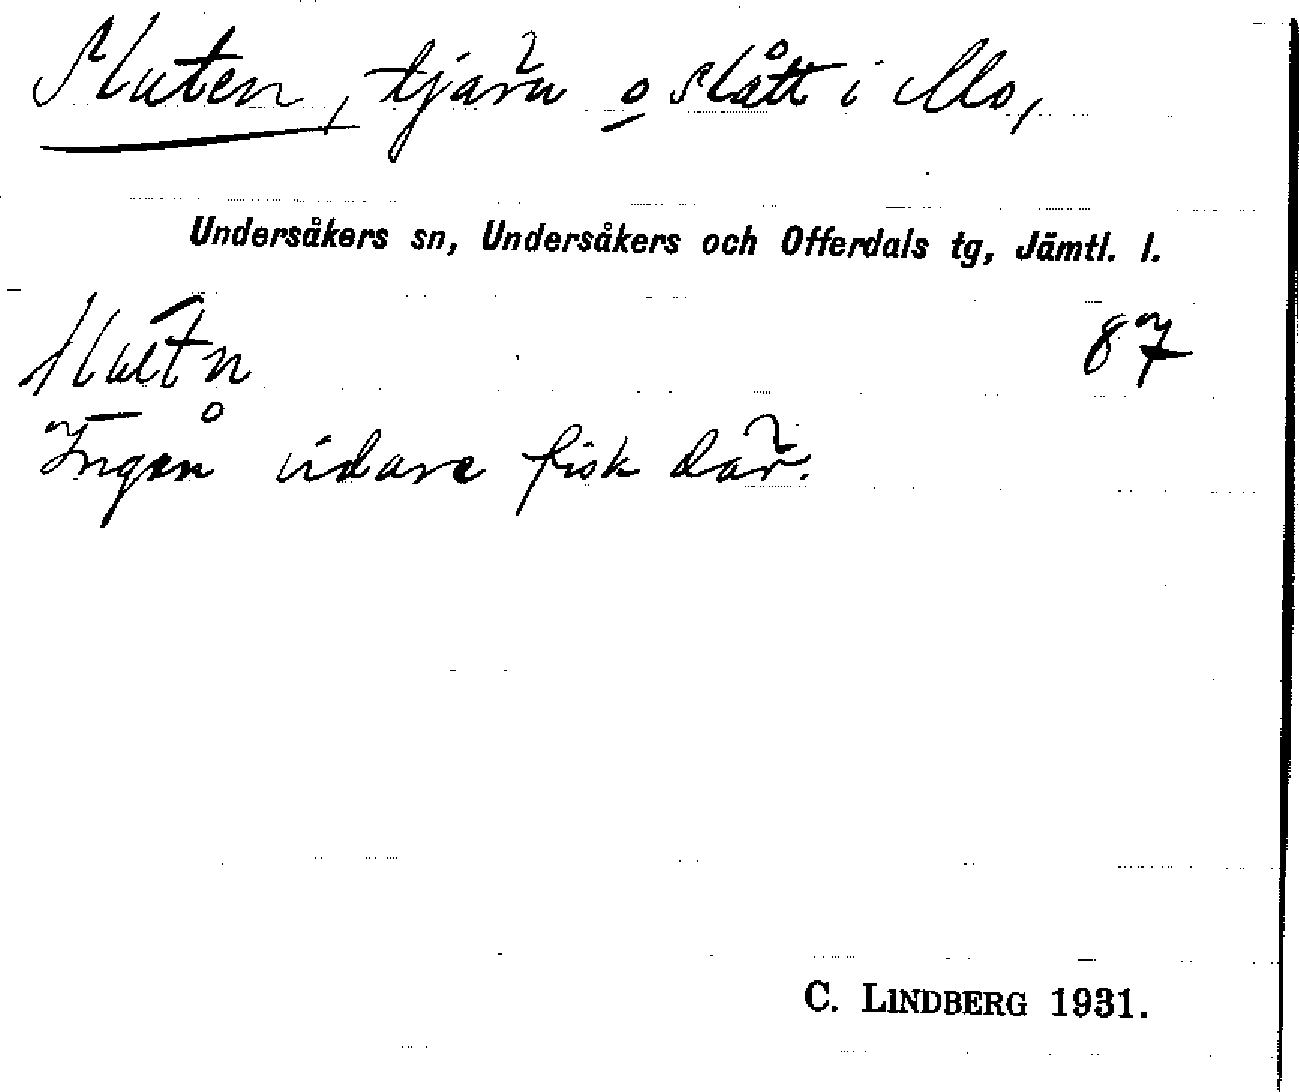 Sluten, tjärn o slått i Mo,
Undersåkers sn, Undersåkers och Offerdals tg, Jämtl. l.
87
Ingen vidare fisk där.
C. LINDBERG 1931.